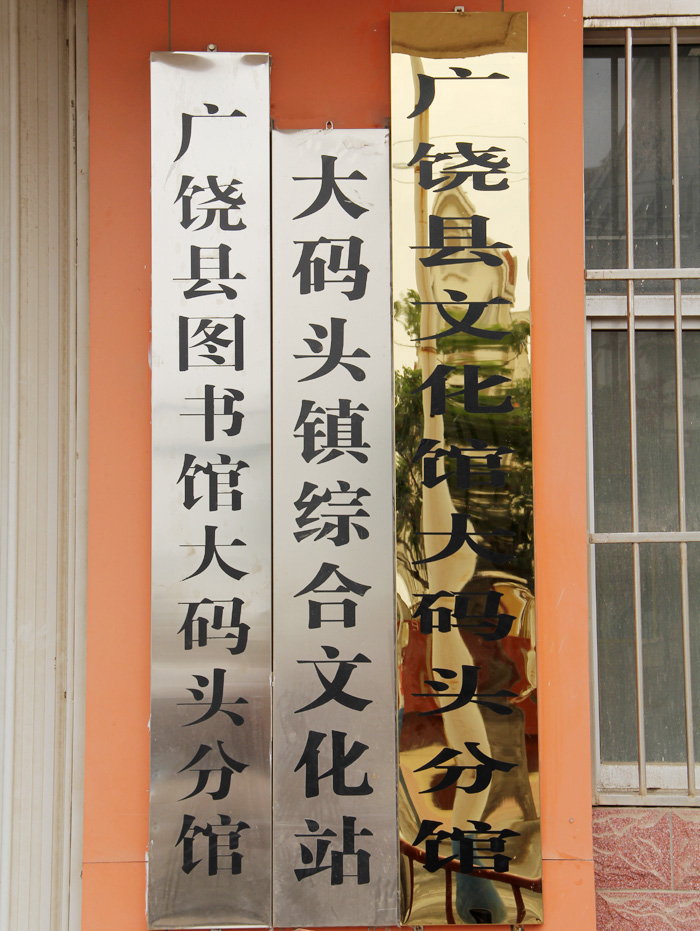 广饶县图书馆大码头分馆
大码头镇综合文化站
广饶县文化馆大码头分馆